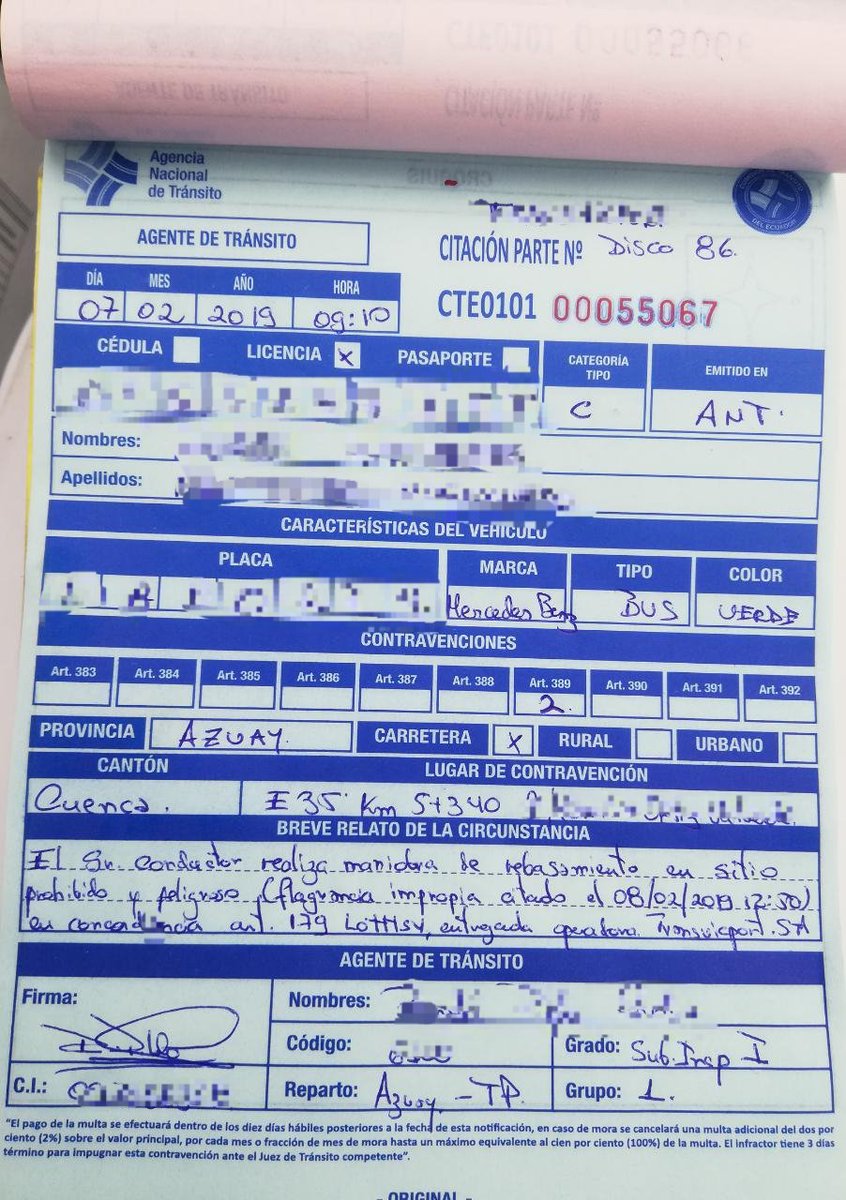 Agencia
Nacional
de Tránsito
DEL ECUADOR
AGENTE DE TRÁNSITO
CITACIÓN PARTE Nº Disco 86.
CTE0101 00055067
DÍA MES AÑO HORA
07 02 2019 09:10
CÉDULA LICENCIA X PASAPORTE
CATEGORÍA
TIPO
C
EMITIDO EN
ANT.
Nombres:
Apellidos:
CARACTERÍSTICAS DEL VEHÍCULO
PLACA MARCA TIPO COLOR
Mercedes Benz BUS VERDE
CONTRAVENCIONES
Art. 383 Art. 384 Art. 385 Art. 386 Art. 387 Art. 388 Art. 389 Art. 390 Art. 391 Art. 392
2.
PROVINCIA AZUAY. CARRETERA X RURAL URBANO
CANTÓN LUGAR DE CONTRAVENCIÓN
Cuenca. E35 Km 5+340
BREVE RELATO DE LA CIRCUNSTANCIA
El Sr. conductor realiza maniobra de rebasamiento en sitio
prohibido y peligroso, (flagrancia impropia citado el 08/02/2019 12:30)
en concordancia art. 179 LOTTTSV, entregada operadora SA
AGENTE DE TRÁNSITO
Firma:
Nombres:
Código:
Grado: Sub.Insp I
C.I.:
Reparto: Azuay - TP.
Grupo: 1.
"El pago de la multa se efectuará dentro de los diez días hábiles posteriores a la fecha de esta notificación, en caso de mora se cancelará una multa adicional del dos por
ciento (2%) sobre el valor principal, por cada mes o fracción de mes de mora hasta un máximo equivalente al cien por ciento (100%) de la multa. El infractor tiene 3 días
término para impugnar esta contravención ante el Juez de Tránsito competente".
- ORIGINAL -